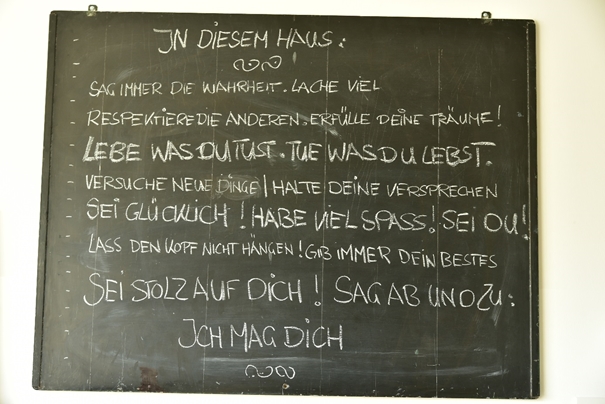 JN DIESEM HAUS:
SAG IMMER DIE WAHRHEIT. LACHE VIEL
RESPEKTIERE DIE ANDEREN. ERFÜLLE DEINE TRÄUME!
LEBE WAS DU TUST. TUE WAS DU LEBST.
VERSUCHE NEUE DINGE | HALTE DEINE VERSPRECHEN
SEI GLÜCKLICH! HABE VIEL SPASS! SEI DU!
LASS DEN KOPF NICHT HÄNGEN! GIB IMMER DEIN BESTES
SEI STOLZ AUF DICH! SAG AB UND ZU:
JCH MAG DICH